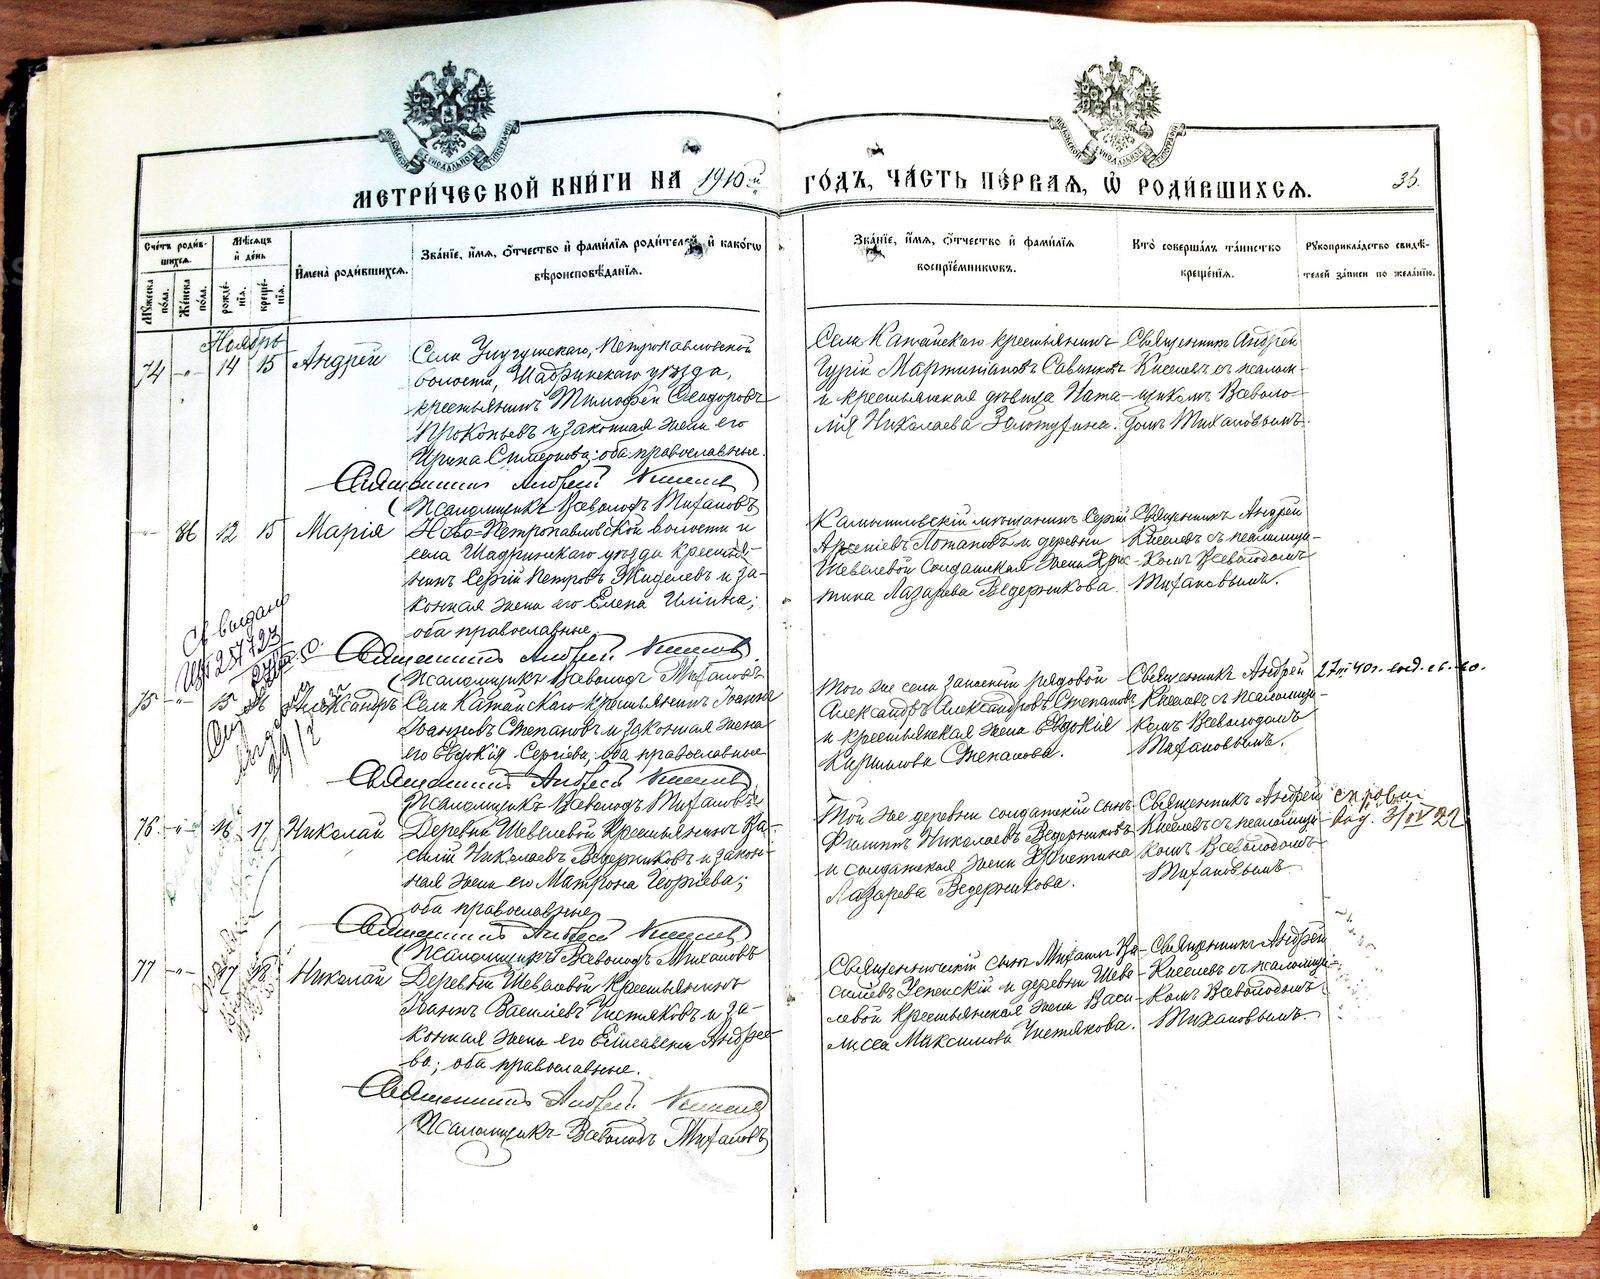 МЕТРИЧЕСКОЙ КНИГИ НА 1910й ГОДЪ, ЧАСТЬ ПЕРВАЯ, Ѡ РОДИВШИХСЯ.
36.
Счетъ родив-
шихся.
Мужеска
пола.
Женска
пола.
Мѣсяцъ
и день
рожде-
нія.
креще-
нія.
Имена родившихся.
Званіе, имя, отчество и фамилія родителей и какогѡ
вѣроисповѣданія.
Званіе, имя, отчество и фамилія
воспріемниковъ.
Кто совершалъ таинство
крещенія.
Рукоприкладство свидѣ-
телей записи по желанію.
Ноябрь
74 -"- 14 15 Андрей
Села Петропавловской
волости, Шадринскаго уѣзда,
крестьянинъ Тимофей Ѳеодоровъ
Прокопьевъ и законная жена его
Ирина оба православные.
Священникъ Андрей Киселев
Псаломщикъ Всеволодъ Тихановъ
Села Катайскаго крестьянинъ
Гурій Мартиніановъ
и крестьянская дѣвица Ната-
лія Николаева Золотухина.
Священникъ Андрей
Киселевъ съ псалом-
щикомъ Всеволо-
домъ Тихановымъ.
-"- 86 12 15 Марія
Ново-Петропавловской волости и
села Шадринскаго уѣзда крестья-
нинъ Сергій Петровъ и за-
конная жена его Елена Ильина;
оба православные.
Священникъ Андрей Киселев
Псаломщикъ Всеволодъ Тихановъ
мѣщанинъ Сергій
Арсеніевъ Потаповъ и деревни
Шевелевой солдатская жена Хрис-
тина Лазарева Ведерникова.
Священникъ Андрей
Киселевъ съ псаломщи-
комъ Всеволодомъ
Тихановымъ.
Св выдано
75 -"- 15 Александръ
Села Катайскаго крестьянинъ Іоаннъ
Іоанновъ Степановъ и законная жена
его Евдокія Сергіева; оба православные
Священникъ Андрей Киселев
Псаломщикъ Всеволодъ Тихановъ
Того же села запасный рядовой
Александръ Александровъ Степановъ
и крестьянская жена Евдокія
Кириллова Степанова.
Священникъ Андрей
Киселевъ съ псаломщи-
комъ Всеволодомъ
Тихановымъ.
76 -"- 16 17 Николай
Деревни Шевелевой крестьянинъ Ва-
силій Николаевъ Ведерниковъ и закон-
ная жена его Матрона Георгіева;
оба православные
Священникъ Андрей Киселев
Псаломщикъ Всеволодъ Тихановъ
Той же деревни солдатскій сынъ
Филиппъ Николаевъ Ведерниковъ
и солдатская жена Христина
Лазарева Ведерникова.
Священникъ Андрей
Киселевъ съ псаломщи-
комъ Всеволодомъ
Тихановымъ
77 -"- 17 Николай
Деревни Шевелевой крестьянинъ
Іоаннъ Василіевъ Чистяковъ и за-
конная жена его Елисавета Андрее-
ва; оба православные.
Священникъ Андрей Киселев
Псаломщикъ Всеволодъ Тихановъ
Священническій сынъ Михаилъ Ва-
силіевъ Успенскій и деревни Шеве-
левой крестьянская жена Васи-
лисса Максимова Чистякова.
Священникъ Андрей
Киселевъ съ псаломщи-
комъ Всеволодомъ
Тихановымъ